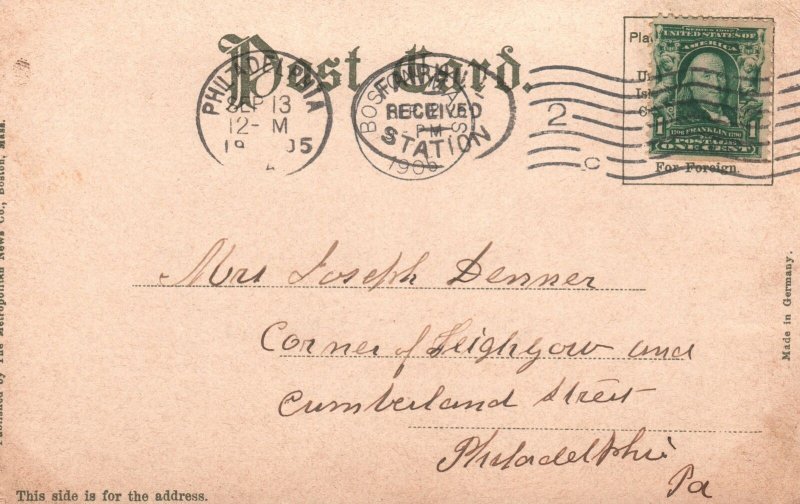 Post Card.
PHILADELPHIA
SEP 13
12- M
1905
BOSTON, MASS.
FAIRHILL
RECEIVED
PM
STATION
1905
2
C
SERIES 1902
UNITED STATES OF
AMERICA
1 1706 FRANKLIN 1790 1
POSTAGE
ONE CENT
For Foreign.
Mrs Joseph Denner
Corner of Leighgow and
Cumberland Street
Philadelphia
Pa
This side is for the address.
Published by The Metropolitan News Co., Boston, Mass.
Made in Germany.